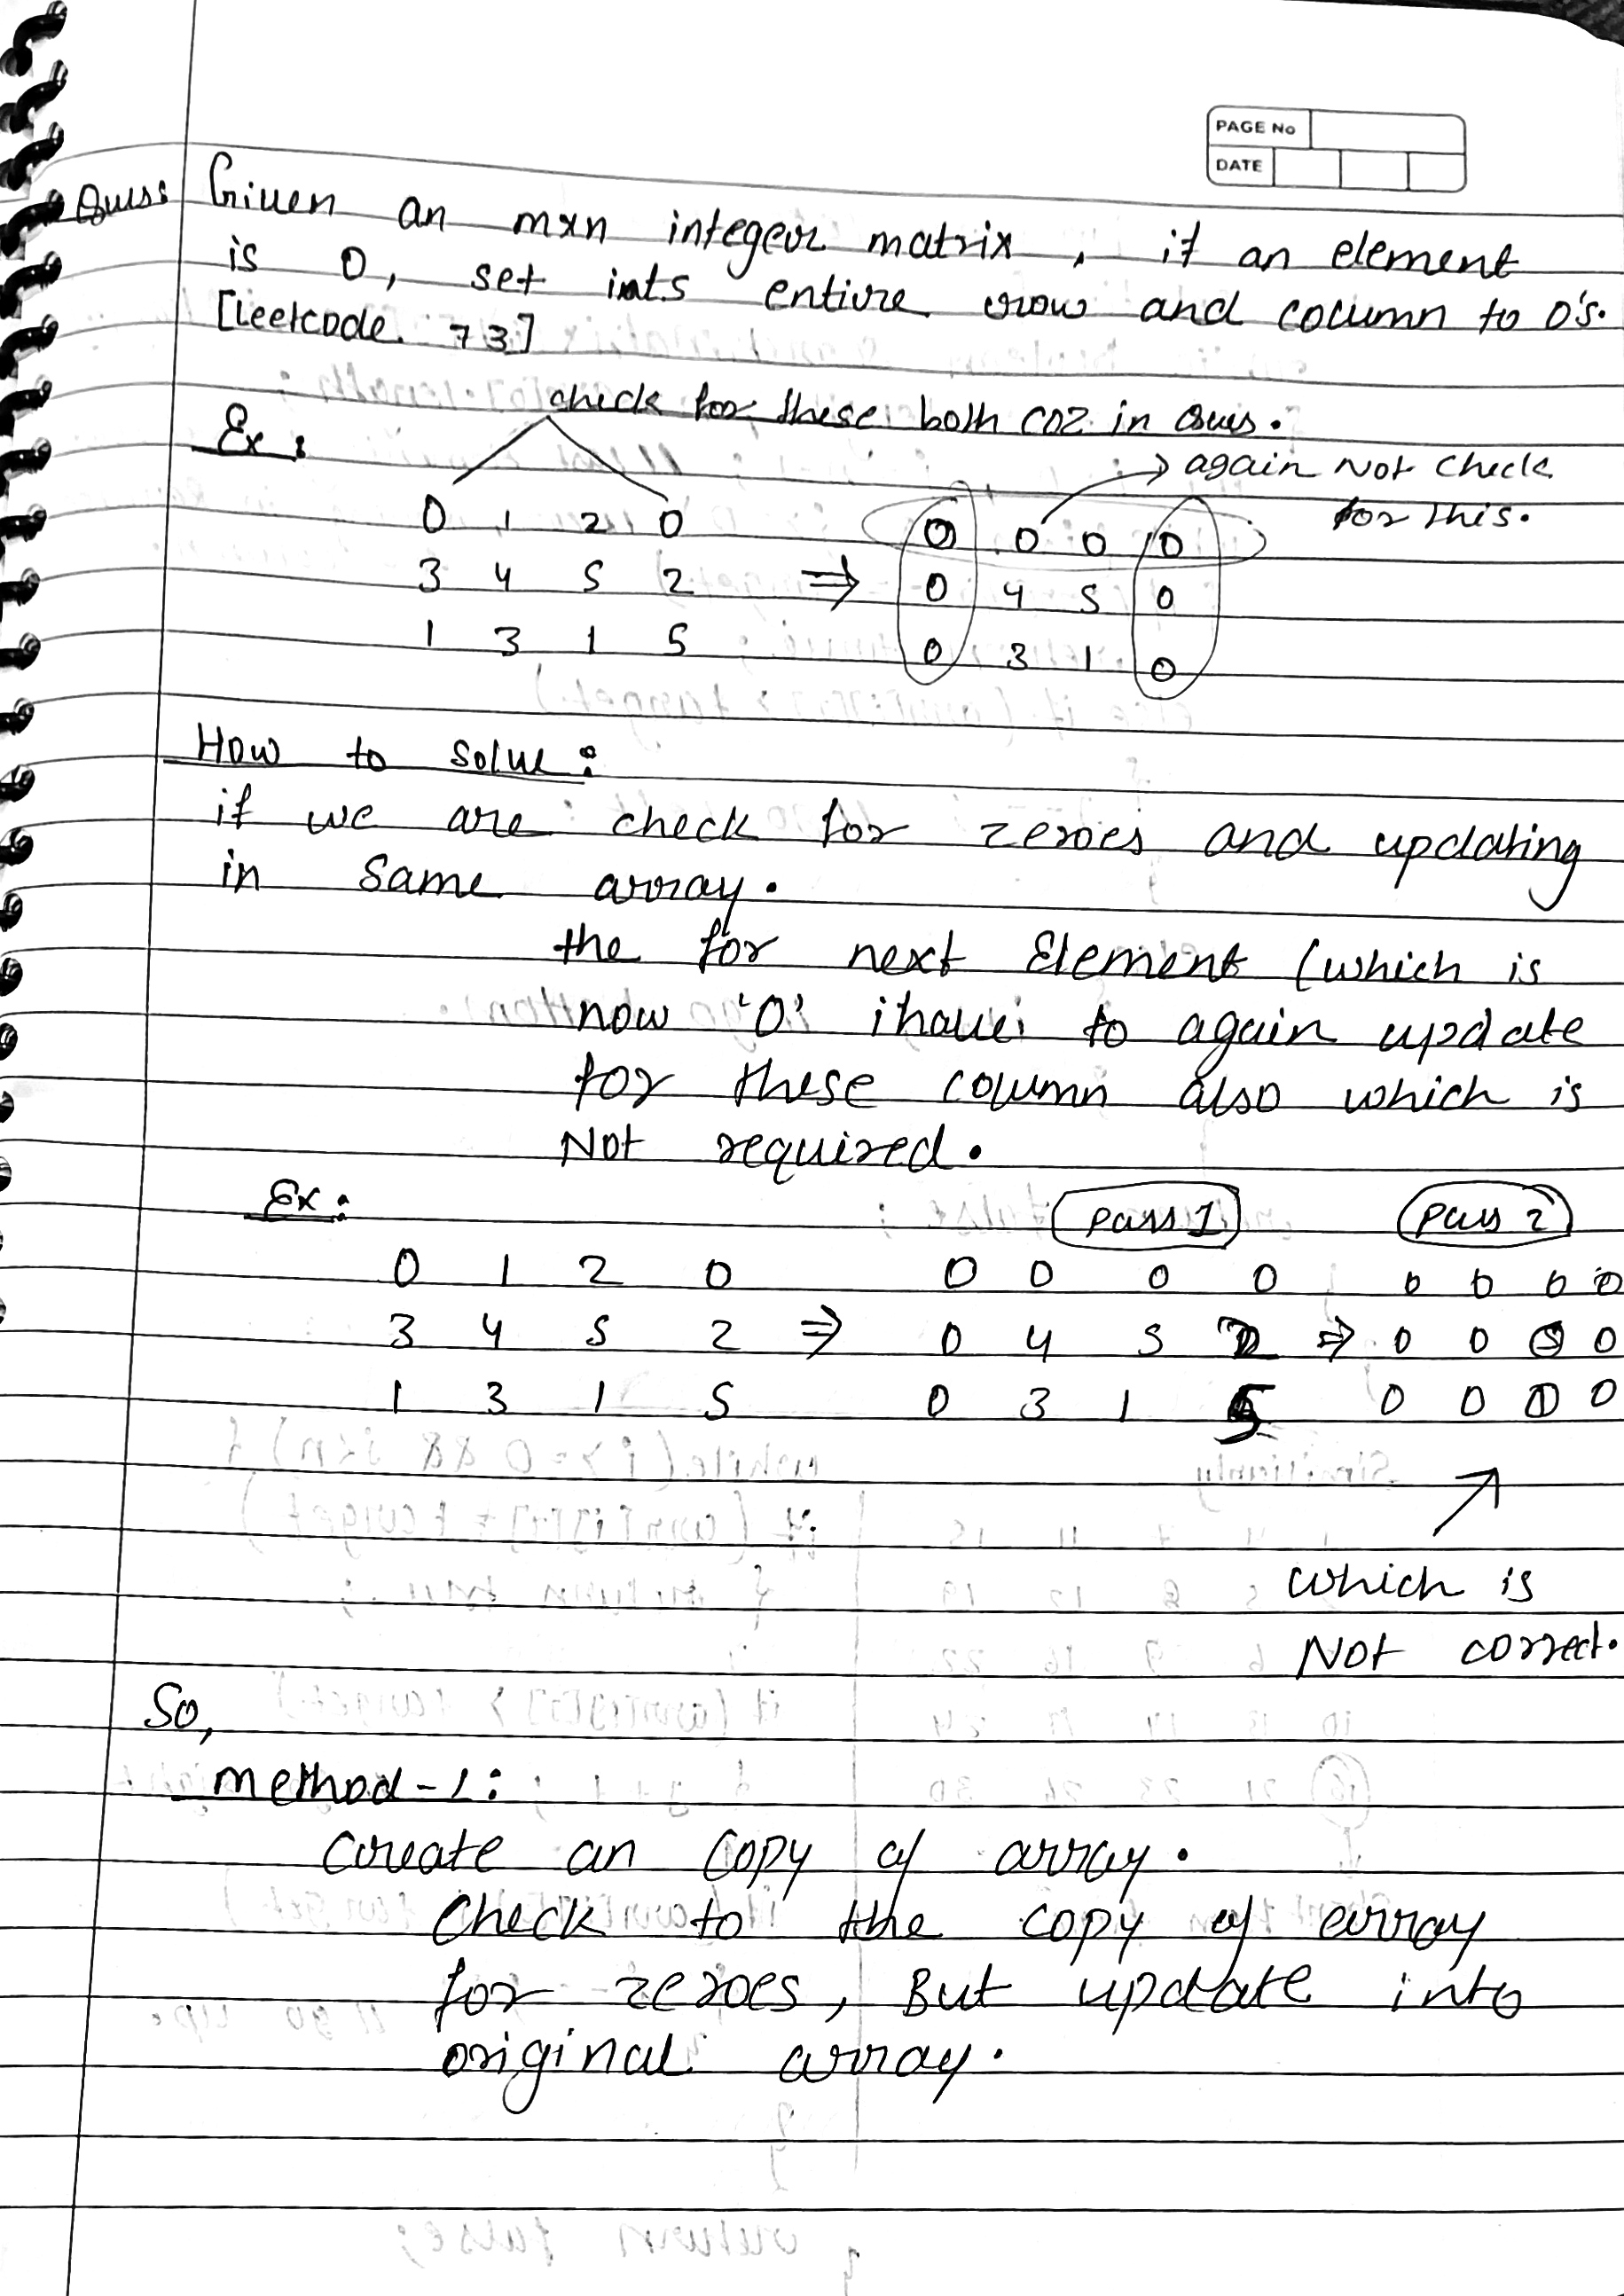 PAGE No
DATE
Ques: Given an mxn integer matrix , if an element
is 0, set its entire row and column to 0's.
[Leetcode 73]
check for these both coz in Ques.
Ex :
→ again Not check
for this.
0 1 2 0 0 0 0 0
3 4 5 2 ⇒ 0 4 5 0
1 3 1 5 0 3 1 0
How to solve :
if we are check for zeroes and updating
in same array.
the for next Element (which is
now '0' i have to again update
for these column also which is
Not required.
Ex : pass 1 pass 2
0 1 2 0 0 0 0 0 0 0 0 0
3 4 5 2 ⇒ 0 4 5 2 ⇒ 0 0 0 0
1 3 1 5 0 3 1 5 0 0 0 0
which is
Not correct.
So,
method-1:
Create an copy of array.
Check to the copy of array
for zeroes, But update into
original array.